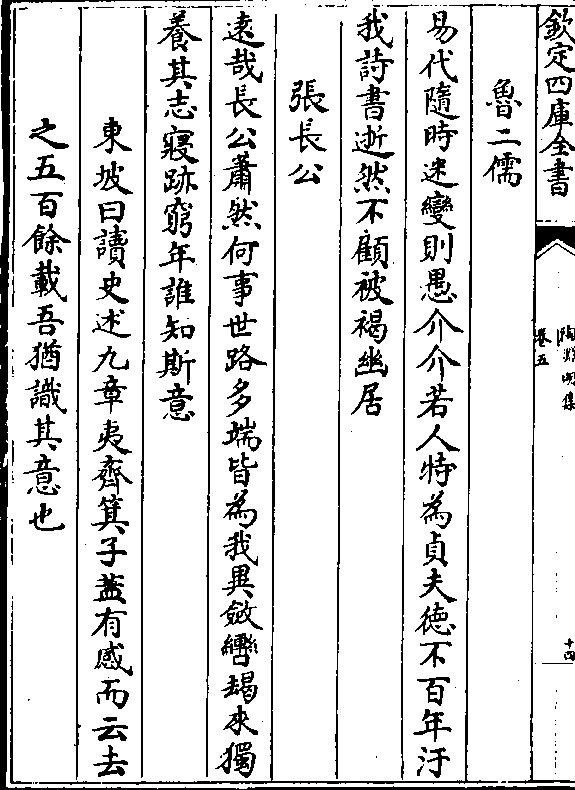 欽定四庫全書
陶淵明集
卷五
十四
魯二儒
易代隨時迷變則愚介介若人特為貞夫徳不百年汙
我詩書逝然不顧被褐幽居
張長公
逺哉長公蕭然何事世路多端皆為我異斂轡朅來獨
養其志寢跡窮年誰知斯意
東坡曰讀史述九章夷齊箕子葢有感而云去
之五百餘載吾猶識其意也